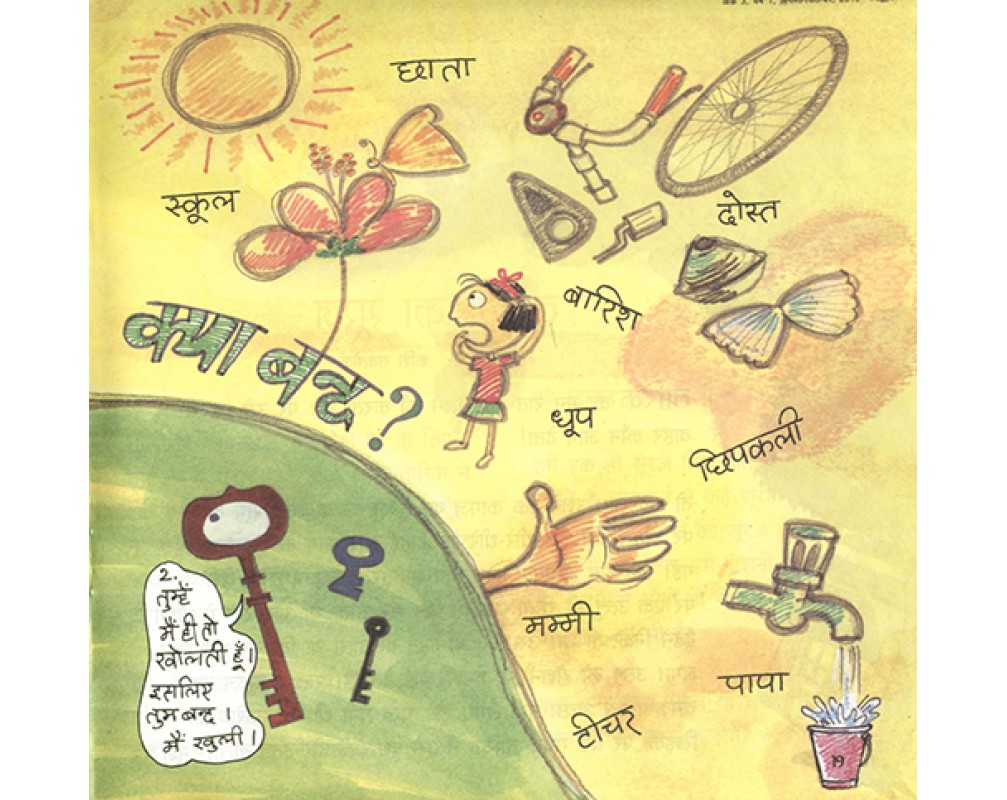 छाता
स्कूल
दोस्त
बारिश
क्या बन्द?
धूप
छिपकली
2.
तुम्हें
मैं ही तो
खोलती हूँ।
इसलिए
तुम बन्द।
मैं खुली।
मम्मी
पापा
टीचर
19